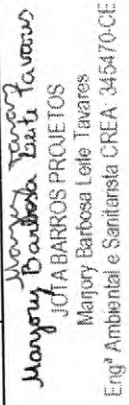 Marjory Barbosa Leite Tavares
JOTA BARROS PROJETOS
Marjory Barbosa Leite Tavares
Engª Ambiental e Sanitarista CREA: 345470-CE